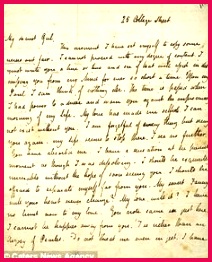 25 College Street
My dearest Girl,
This moment I have set myself to copy some
verses out fair. I cannot proceed with any degree of content. I
must write you a line or two and see if that will assist in dis-
missing you from my Mind for ever so short a time. Upon my
Soul I can think of nothing else. The time is passed when
I had power to advise and warn you against the unpromising
morning of my Life. My love has made me selfish. I can
not exist without you. I am forgetful of every thing but seeing
you again my life seems to stop there I see no further
You have absorb'd me. I have a sensation at the present
moment as though I was dissolving I should be exquisitely
miserable without the hope of soon seeing you. I should be
afraid to separate myself far from you. My sweet Fanny
will your heart never change? My love will it? I have
no limit now to my love You note came in just here
I cannot be happier away from you. T'is richer than an
Argosy of Pearles. Do not threat me even in jest. I have